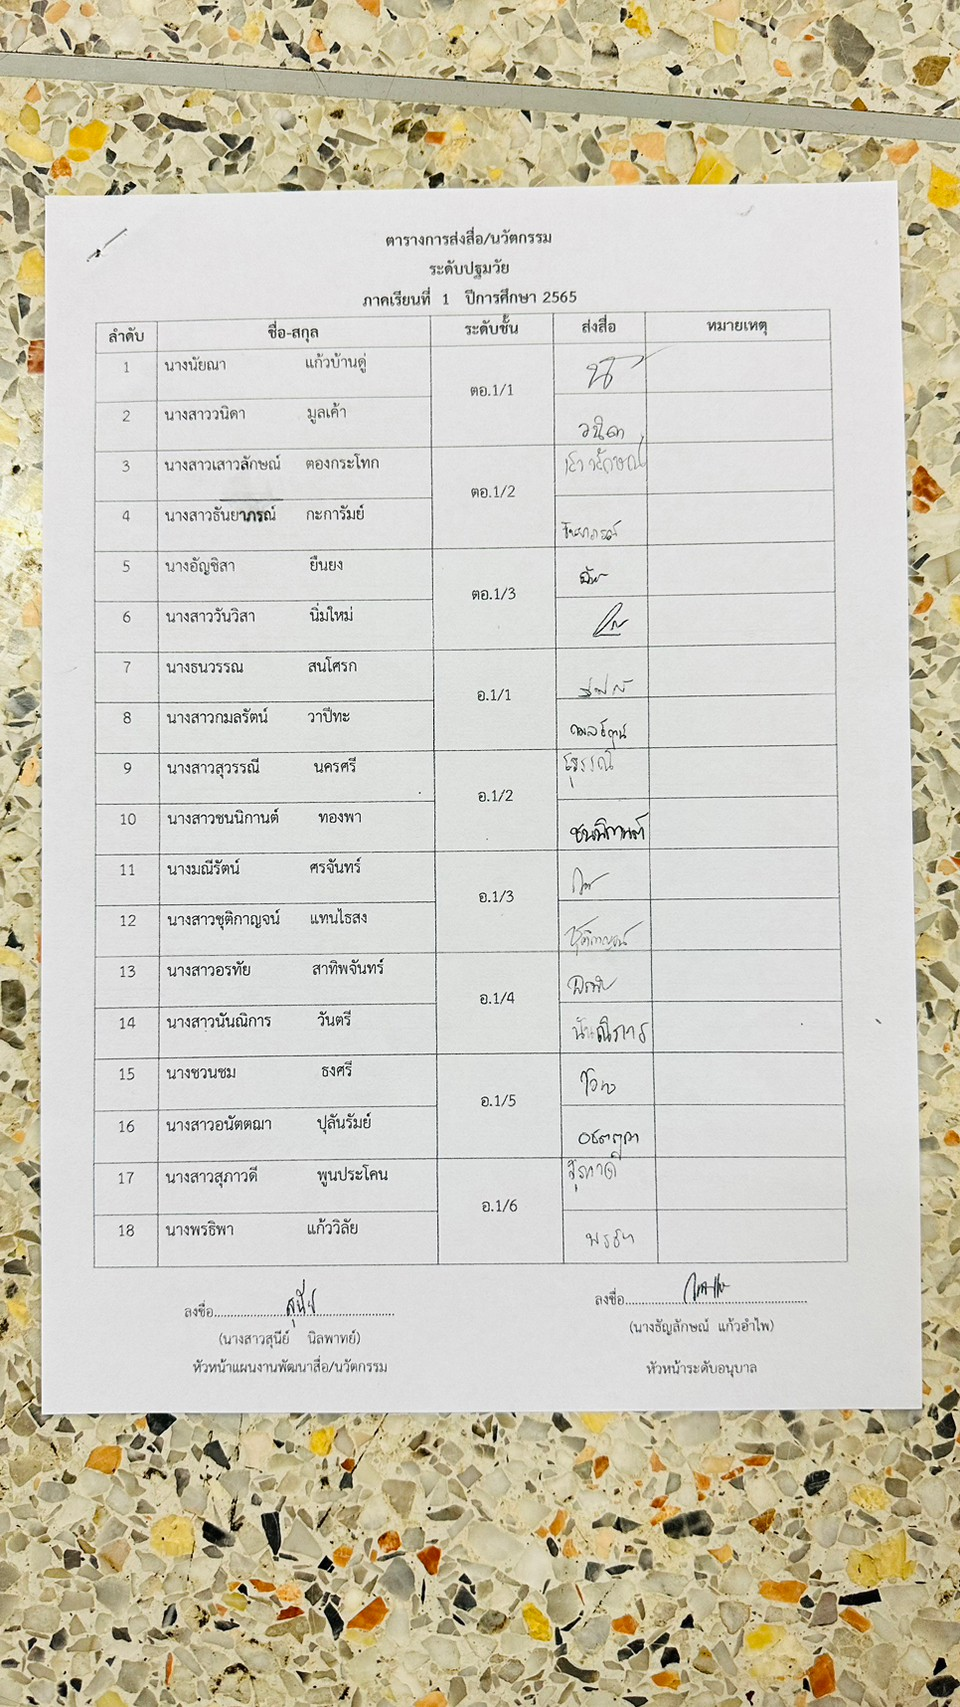 ตารางการส่งสื่อ/นวัตกรรม
ระดับปฐมวัย
ภาคเรียนที่ 1 ปีการศึกษา 2565
ลำดับ ชื่อ-สกุล ระดับชั้น ส่งสื่อ หมายเหตุ
1 นางนัยณา แก้วบ้านดู่ ตอ.1/1
2 นางสาววนิดา มูลเค้า วนิดา
3 นางสาวเสาวลักษณ์ ตองกระโทก ตอ.1/2 เสาวลักษณ์
4 นางสาวธันยาภรณ์ กะการัมย์ ธันยาภรณ์
5 นางอัญชิสา ยืนยง ตอ.1/3
6 นางสาววันวิสา นิ่มใหม่
7 นางธนวรรณ สนโศรก อ.1/1
8 นางสาวกมลรัตน์ วาปีทะ กมลรัตน์
9 นางสาวสุวรรณี นครศรี อ.1/2 สุวรรณี
10 นางสาวชนนิกานต์ ทองพา ชนนิกานต์
11 นางมณีรัตน์ ศรจันทร์ อ.1/3
12 นางสาวชุติกาญจน์ แทนไธสง ชุติกาญจน์
13 นางสาวอรทัย สาทิพจันทร์ อ.1/4
14 นางสาวนันณิการ วันตรี นันณิการ
15 นางชวนชม ธงศรี อ.1/5
16 นางสาวอนัตตฌา ปุลันรัมย์
17 นางสาวสุภาวดี พูนประโคน อ.1/6 สุภาวดี
18 นางพรธิพา แก้ววิลัย
ลงชื่อ สุนีย์ ลงชื่อ
(นางสาวสุนีย์ นิลพาทย์) (นางธัญลักษณ์ แก้วอำไพ)
หัวหน้าแผนงานพัฒนาสื่อ/นวัตกรรม หัวหน้าระดับอนุบาล